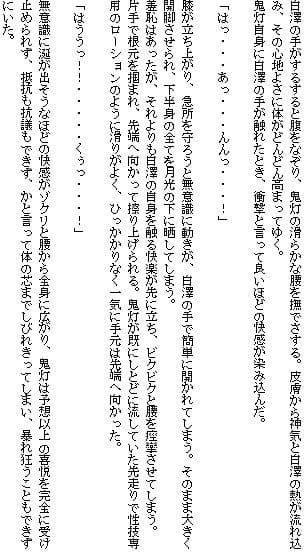 白澤の手がするすると腹をなぞり、鬼灯の滑らかな腰を撫でさする。皮膚から神気と白澤の熱が流れ込
み、その心地よさに体がどんどん高まってゆく。
鬼灯自身に白澤の手が触れたとき、衝撃と言って良いほどの快感が染み込んだ。
「はっ・・・あっ・・・んんっ・・・！」
膝が立ち上がり、急所を守ろうと無意識に動きが、白澤の手で簡単に開かれてしまう。そのまま大きく
開脚させられ、下半身の全てを月光の下に晒してしまう。
羞恥はあったが、それよりも白澤の自身を触る快楽が先に立ち、ビクビクと腰を痙攣させてしまう。
片手で根元を掴まれ、先端へ向かって擦り上げられる。鬼灯が既にしとどに流していた先走りで性技専
用のローションのように滑りがよく、ひっかかりなく一気に手元は先端へ向かった。
「はううっ！！・・・・くぅっ・・・・！」
無意識に涎が出そうなほどの快感がゾクリと腰から全身に広がり、鬼灯は予想以上の喜悦を完全に受け
止められず、抵抗も抗議もできず、かと言って体の芯までしびれきってしまい、暴れ狂うこともできず
にいた。